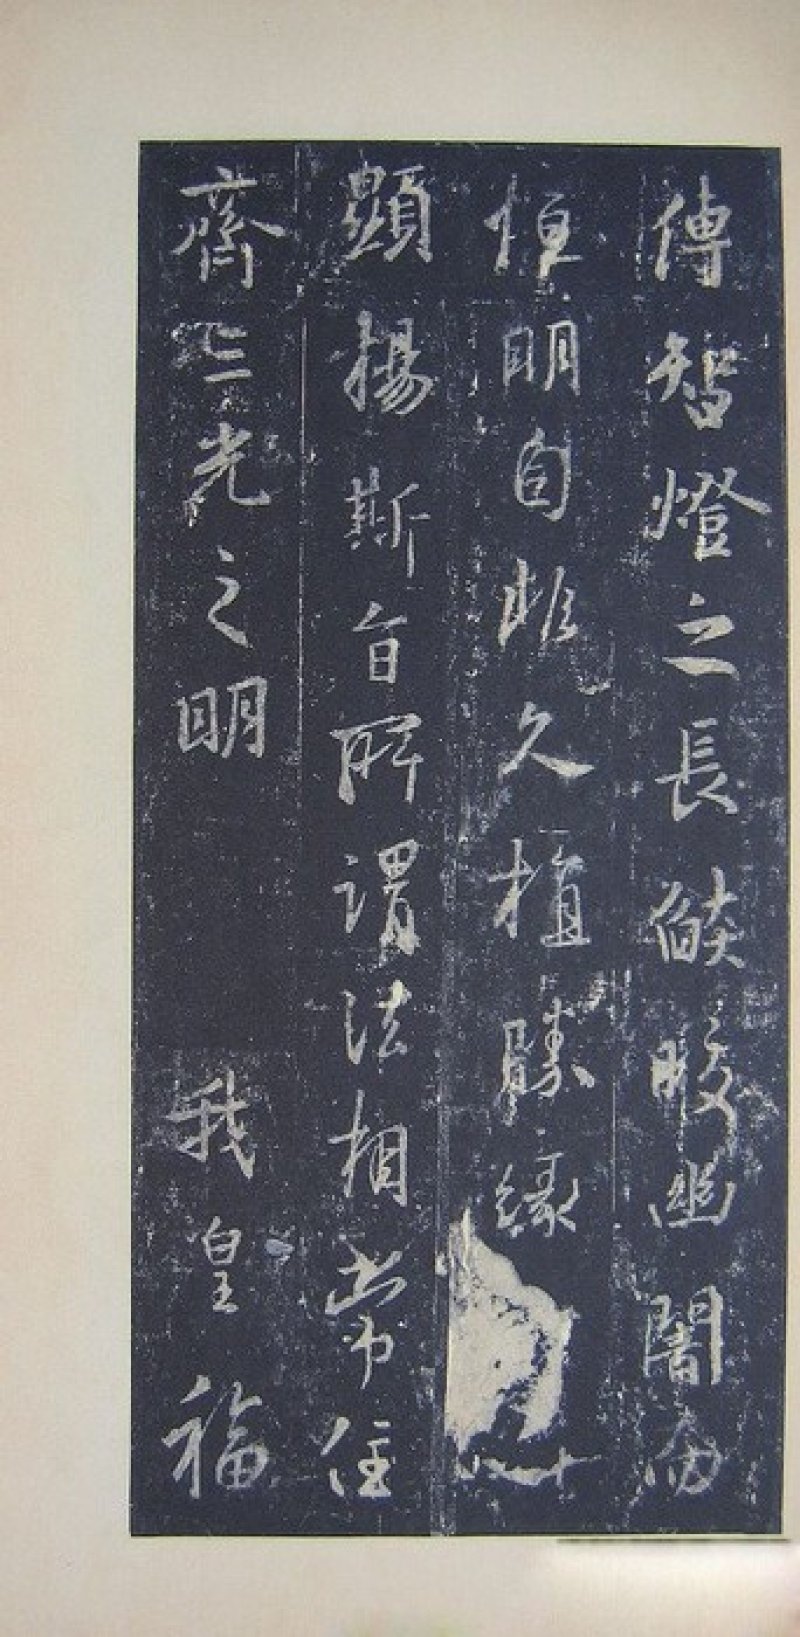 傳智燈之長燄皎幽闇而
恒明自非久植勝緣
顯揚斯旨所謂法相常住
齊三光之明　我皇福